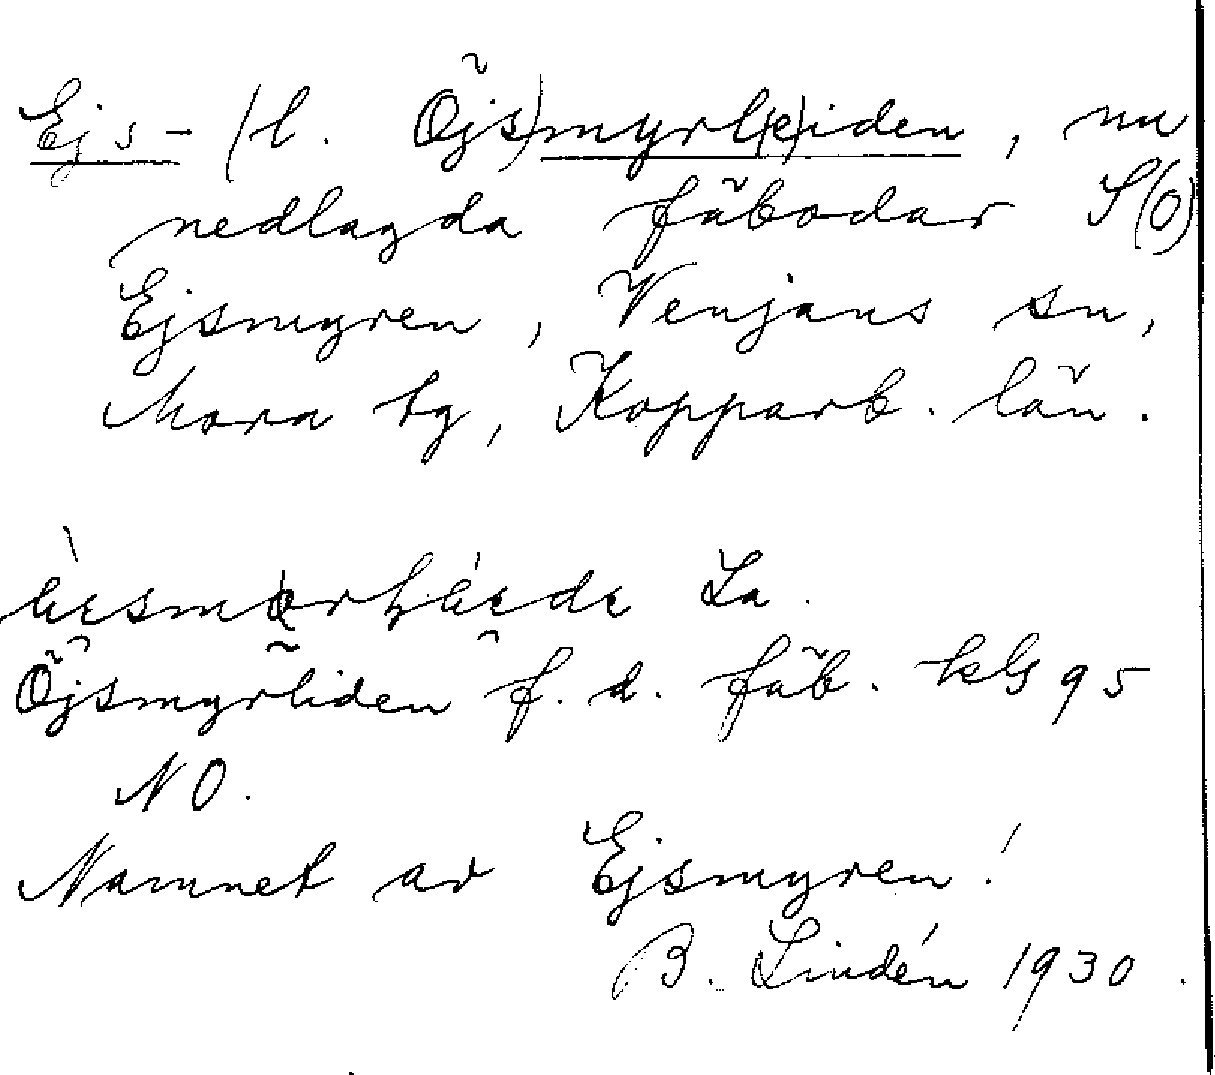 Ejs- (l. Öjs)myrl(e)iden, nu
nedlagda fäbodar S(O)
Ejsmyren, Venjans sn,
Mora tg, Kopparb. län.
La.
Öjsmyrliden f.d. fäb. kbl 95
NO.
Namnet av Ejsmyren!
B. Lindén 1930.